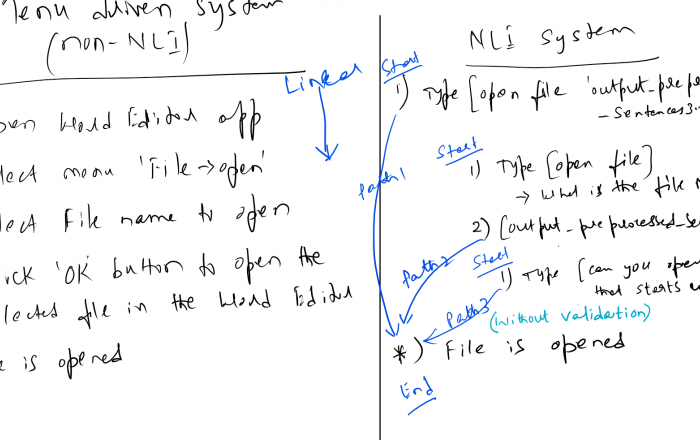 Menu driven system
(non-NLI)
Linear
open Word Editor app
select menu 'File→open'
select File name to open
click 'OK' button to open the
selected file in the Word Editor
is opened
NLI System
Start
1) Type [open file 'output_prepr
-Sentences3
Path1
Start
1) Type [open file]
→ What is the file n
2) [output_preprocessed_se
Path2
Start
1) Type [can you open
that starts
Path3
(without validation)
*) File is opened
End